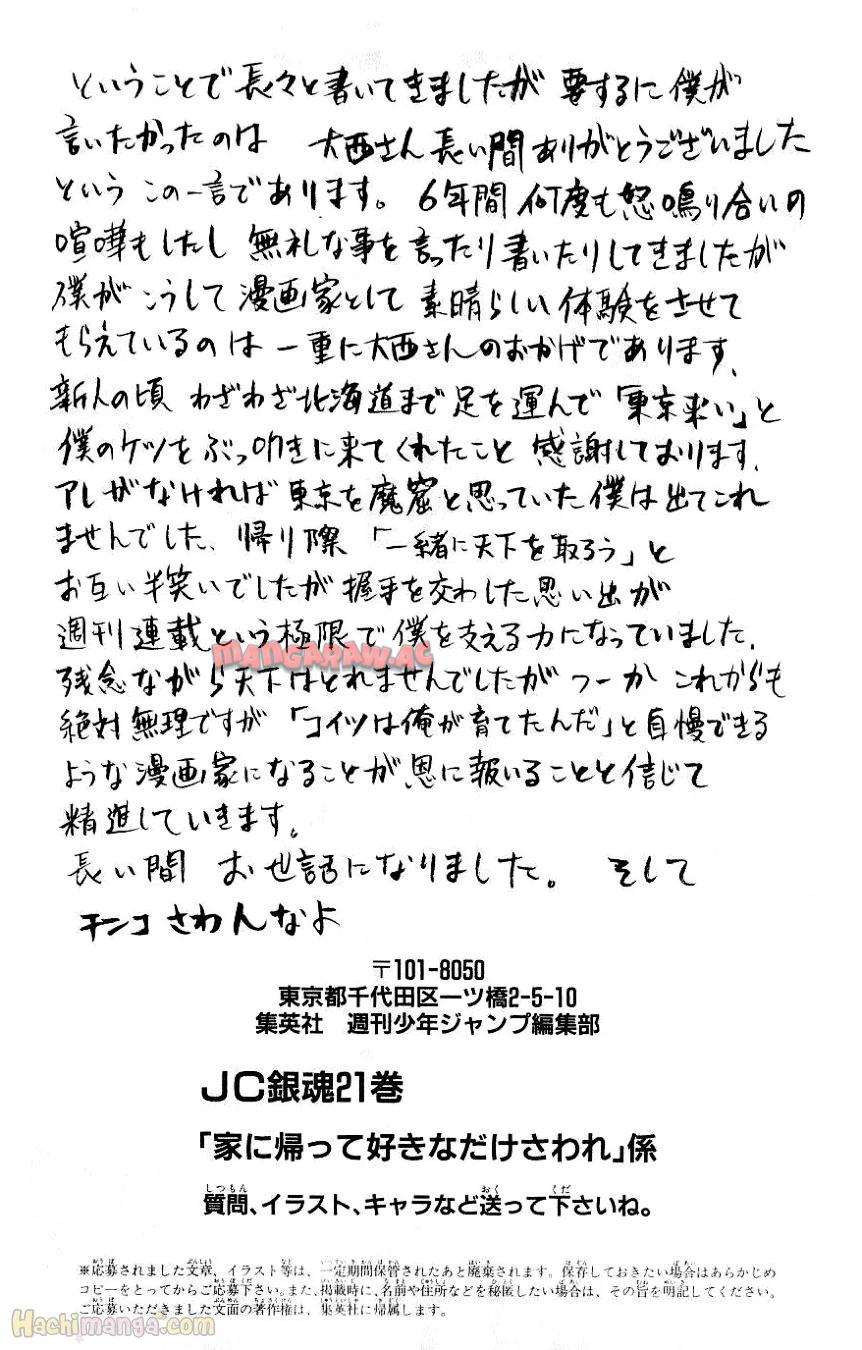 ということで長々と書いてきましたが 要するに僕が
言いたかったのは 大西さん長い間ありがとうございました
という この一言であります。6年間何度も怒鳴り合いの
喧嘩もしたし 無礼な事を言ったり書いたりしてきましたが
僕がこうして漫画家として素晴らしい体験をさせて
もらえているのは一重に大西さんのおかげであります。
新人の頃 わざわざ北海道まで足を運んで「東京来い」と
僕のケツをぶっ叩きに来てくれたこと 感謝しております。
アレがなければ東京を魔窟と思っていた僕は出てこれ
ませんでした。帰り際「一緒に天下を取ろう」と
お互い半笑いでしたが握手を交わした思い出が
週刊連載という極限で僕を支える力になっていました。
MANGARAW.AC
残念ながら天下はとれませんでしたがつーかこれからも
絶対無理ですが「コイツは俺が育てたんだ」と自慢できる
ような漫画家になることが恩に報いることと信じて
精進していきます。
長い間 お世話になりました。 そして
チンコさわんなよ
〒101-8050
東京都千代田区一ツ橋2-5-10
集英社 週刊少年ジャンプ編集部
JC銀魂21巻
「家に帰って好きなだけさわれ」係
質問、イラスト、キャラなど送って下さいね。
※応募されました文章、イラスト等は、一定期間保管されたあと廃棄されます。保存しておきたい場合はあらかじめ
コピーをとってからご応募下さい。また、掲載時に、名前や住所などを秘匿したい場合は、その旨を明記してください。
ご応募いただきました文面の著作権は、集英社に帰属します。
Hachimanga.com